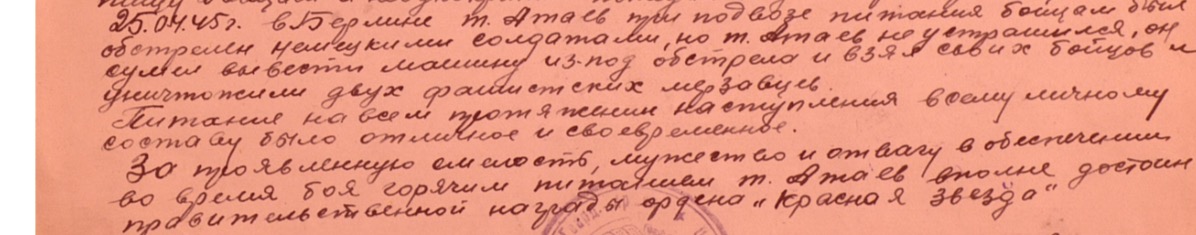 25.04.45г. в Берлине т. Атаев при подвозе питания бойцам был
обстрелен немецкими солдатами, но т. Атаев не устрашился, он
сумел вывести машину из-под обстрела и взял своих бойцов и
уничтожили двух фашистских мерзавцев.
Питание на всем протяжении наступления всему личному
составу было отличное и своевременное.
За проявленную смелость, мужество и отвагу в обеспечении
во время боя горячим питанием т. Атаев вполне достоин
правительственной награды ордена „Красная звезда“